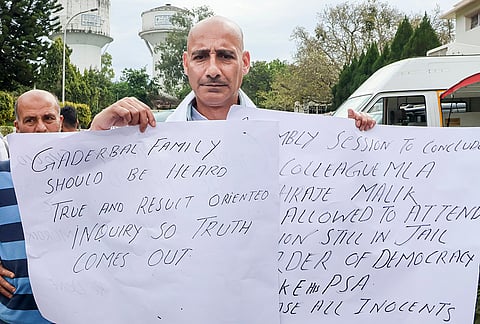 GADERBAL FAMILY
SHOULD BE HEARD
TRUE AND RESULT ORIENTED
INQUIRY SO TRUTH
COMES OUT.
MBLY SESSION TO CONCLUDE
COLLEAGUE MLA
HRAJE MALIK
ALLOWED TO ATTEND
ION STILL IN JAIL
RDER OF DEMOCRACY
KE HIS PSA.
ASE ALL INOCENTS